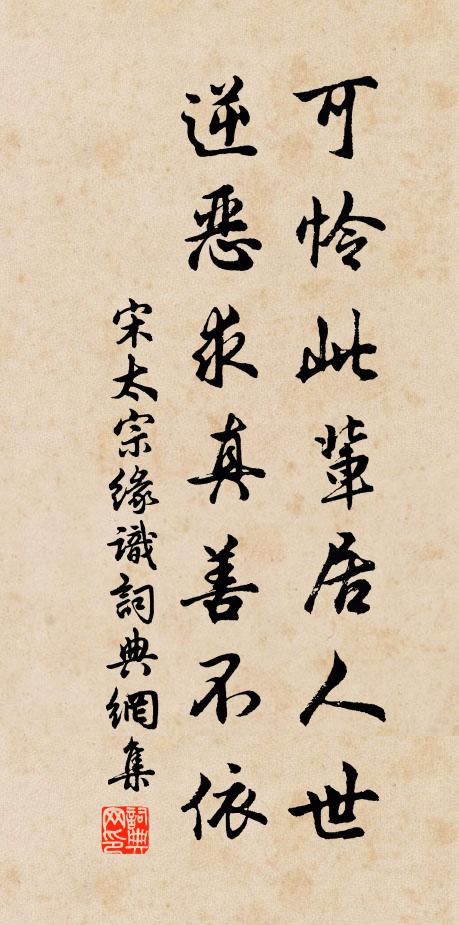 可怜此辈居人世
逆恶求真善不依
宋太宗缘识詞典網集
詞典网印